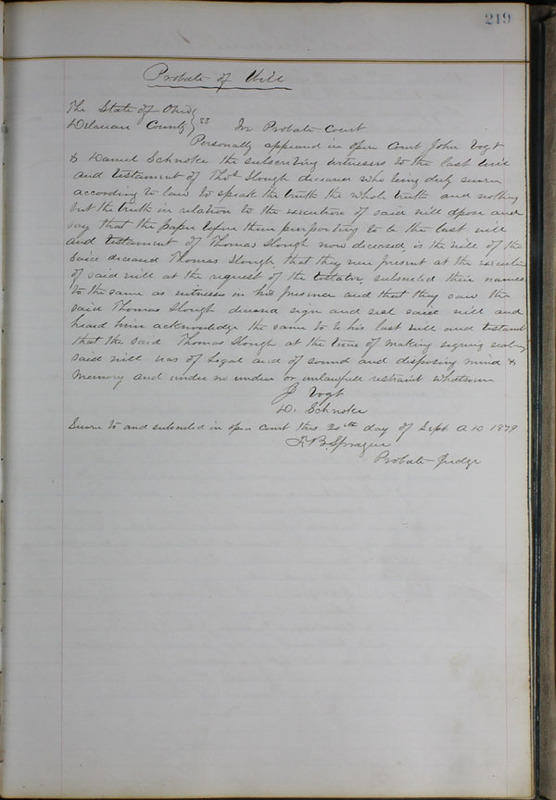 219
Probate of Will
The State of Ohio
Delaware County } SS In Probate Court
Personally appeared in open Court John Vogt
& Daniel Schnotke the subscribing witnesses to the last will
and testament of Thos Slough deceased who being duly sworn
according to law to speak the truth the whole truth and nothing
but the truth in relation to the execution of said will depose and
say that the paper before them purporting to be the last will
and testament of Thomas Slough now deceased is the will of the
said deceased Thomas Slough that they were present at the execution
of said will at the request of the testator, subscribed their names
to the same as witnesses in his presence and that they saw the
said Thomas Slough deceased sign and seal said will and
heard him acknowledge the same to be his last will and testament
that the said Thomas Slough at the time of making signing sealing
said will was of legal and of sound and disposing mind &
memory and under no undue or unlawfull restraint whatsoever
J Vogt
D. Schnotke
Sworn to and subscribed in open court this 20th day of Sept A D 1879
F. B. Sprague
Probate Judge